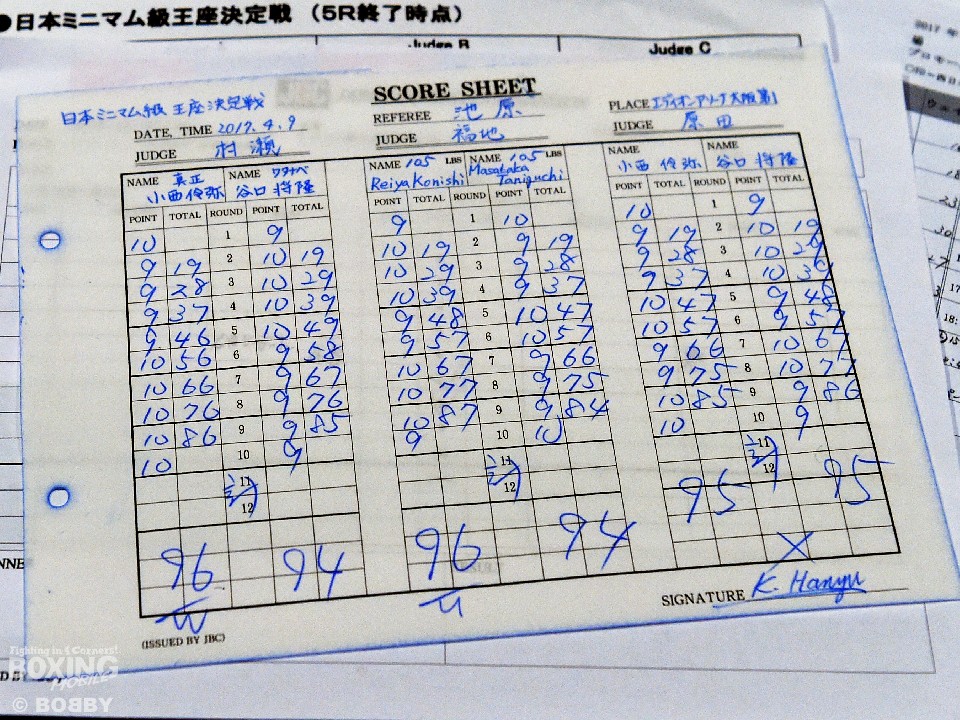 ●日本ミニマム級王座決定戦 （5R終了時点）
Judge B Judge C
2017 年
SCORE SHEET
日本ミニマム級 王座決定戦
REFEREE 池原
PLACE エディオンアリーナ大阪第1
DATE, TIME 2017.4.9
JUDGE 村瀬
JUDGE 福地
JUDGE 原田
NAME 真正 小西伶弥 NAME ワタナベ 谷口将隆
NAME 105 LBS Reiya Konishi NAME 105 LBS Masataka Taniguchi
NAME 小西 伶弥 NAME 谷口 将隆
POINT TOTAL ROUND POINT TOTAL POINT TOTAL ROUND POINT TOTAL POINT TOTAL ROUND POINT TOTAL
10 1 9 9 1 10 10 1 9
9 19 2 10 19 10 19 2 9 19 9 19 2 10 19
9 28 3 10 29 10 29 3 9 28 9 28 3 10 29
9 37 4 10 39 10 39 4 9 37 9 37 4 10 39
9 46 5 10 49 9 48 5 10 47 10 47 5 9 48
10 56 6 9 58 9 57 6 10 57 10 57 6 9 57
10 66 7 9 67 10 67 7 9 66 9 66 7 10 67
10 76 8 9 76 10 77 8 9 75 9 75 8 10 77
10 86 9 9 85 10 87 9 9 84 10 85 9 9 86
10 10 9 9 10 10 10 10 9
11 11 11
12 12 12
96 94 96 94 95 95
W W X
SIGNATURE K. Hanyu
(ISSUED BY JBC)
Fighting in 4 Corners!
BOXING
MOBILE
© BOBBY